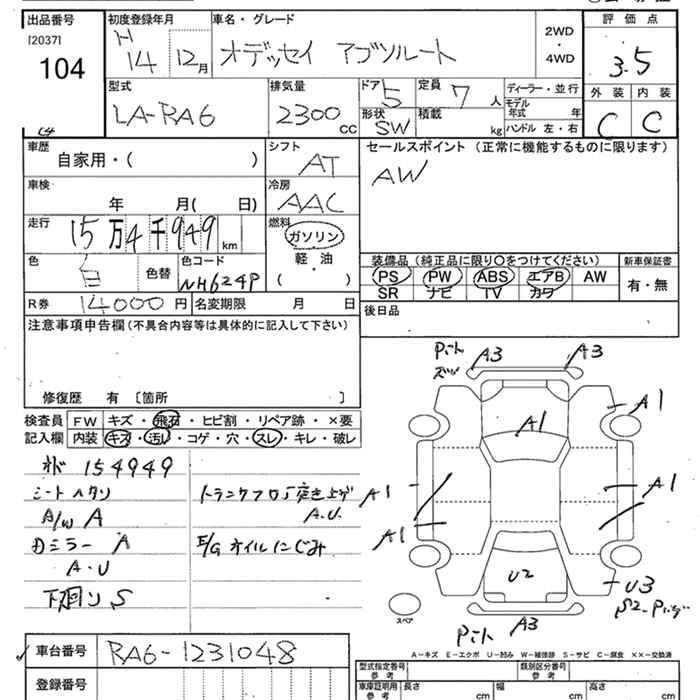 出品番号 初度登録年月 車名・グレード 評価点
[2037] H
104 14 12月 オデッセイ アブソルート 2WD・4WD 3.5
型式 排気量 ドア 定員 ディーラー・並行 外装 内装
LA-RA6 2300cc 5 7人 モデル年式 年 C C
形状 SW 積載 kg ハンドル 左・右
車歴 シフト セールスポイント (正常に機能するものに限ります)
自家用・( ) AT AW
車検 冷房
年 月( 日) AAC
走行 燃料
15万4千949km ガソリン
色 色コード 軽・油 装備品 (純正品に限り〇をつけてください) 新車保証書
白 色替 NH624P ( ) PS PW ABS エアB AW 有・無
SR ナビ TV カワ
R券 14000円 名変期限 月 日 後日品
注意事項申告欄(不具合内容等は具体的に記入して下さい)
修復歴 有 〔箇所 〕
検査員 FW キズ・飛石・ヒビ割・リペア跡・×要
記入欄 内装 キズ・汚レ・コゲ・穴・スレ・キレ・破レ
154949
シートヘタリ
A/W A A.U.
ミラー A E/G オイルにじみ
A・U
下廻り S
A3 A3
A1 A1
A1 A1
A1
U2 U3
A3
スペア
A-キズ E-エクボ U-凹み W-補修跡 S-サビ C-腐食 XX-交換済
車台番号 RA6-1231048
登録番号
型式指定番号 参考 類別区分番号 参考
車庫証明用 参考 長さ cm 幅 cm 高さ cm